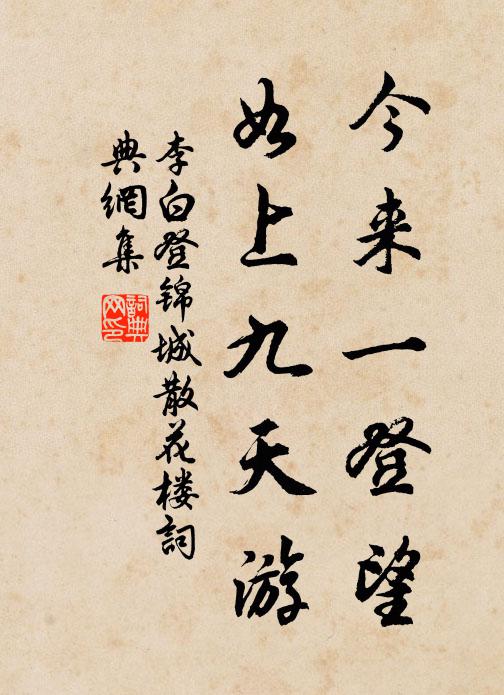 今来一登望
如上九天游
李白登锦城散花楼词
典網集
詞典
网印